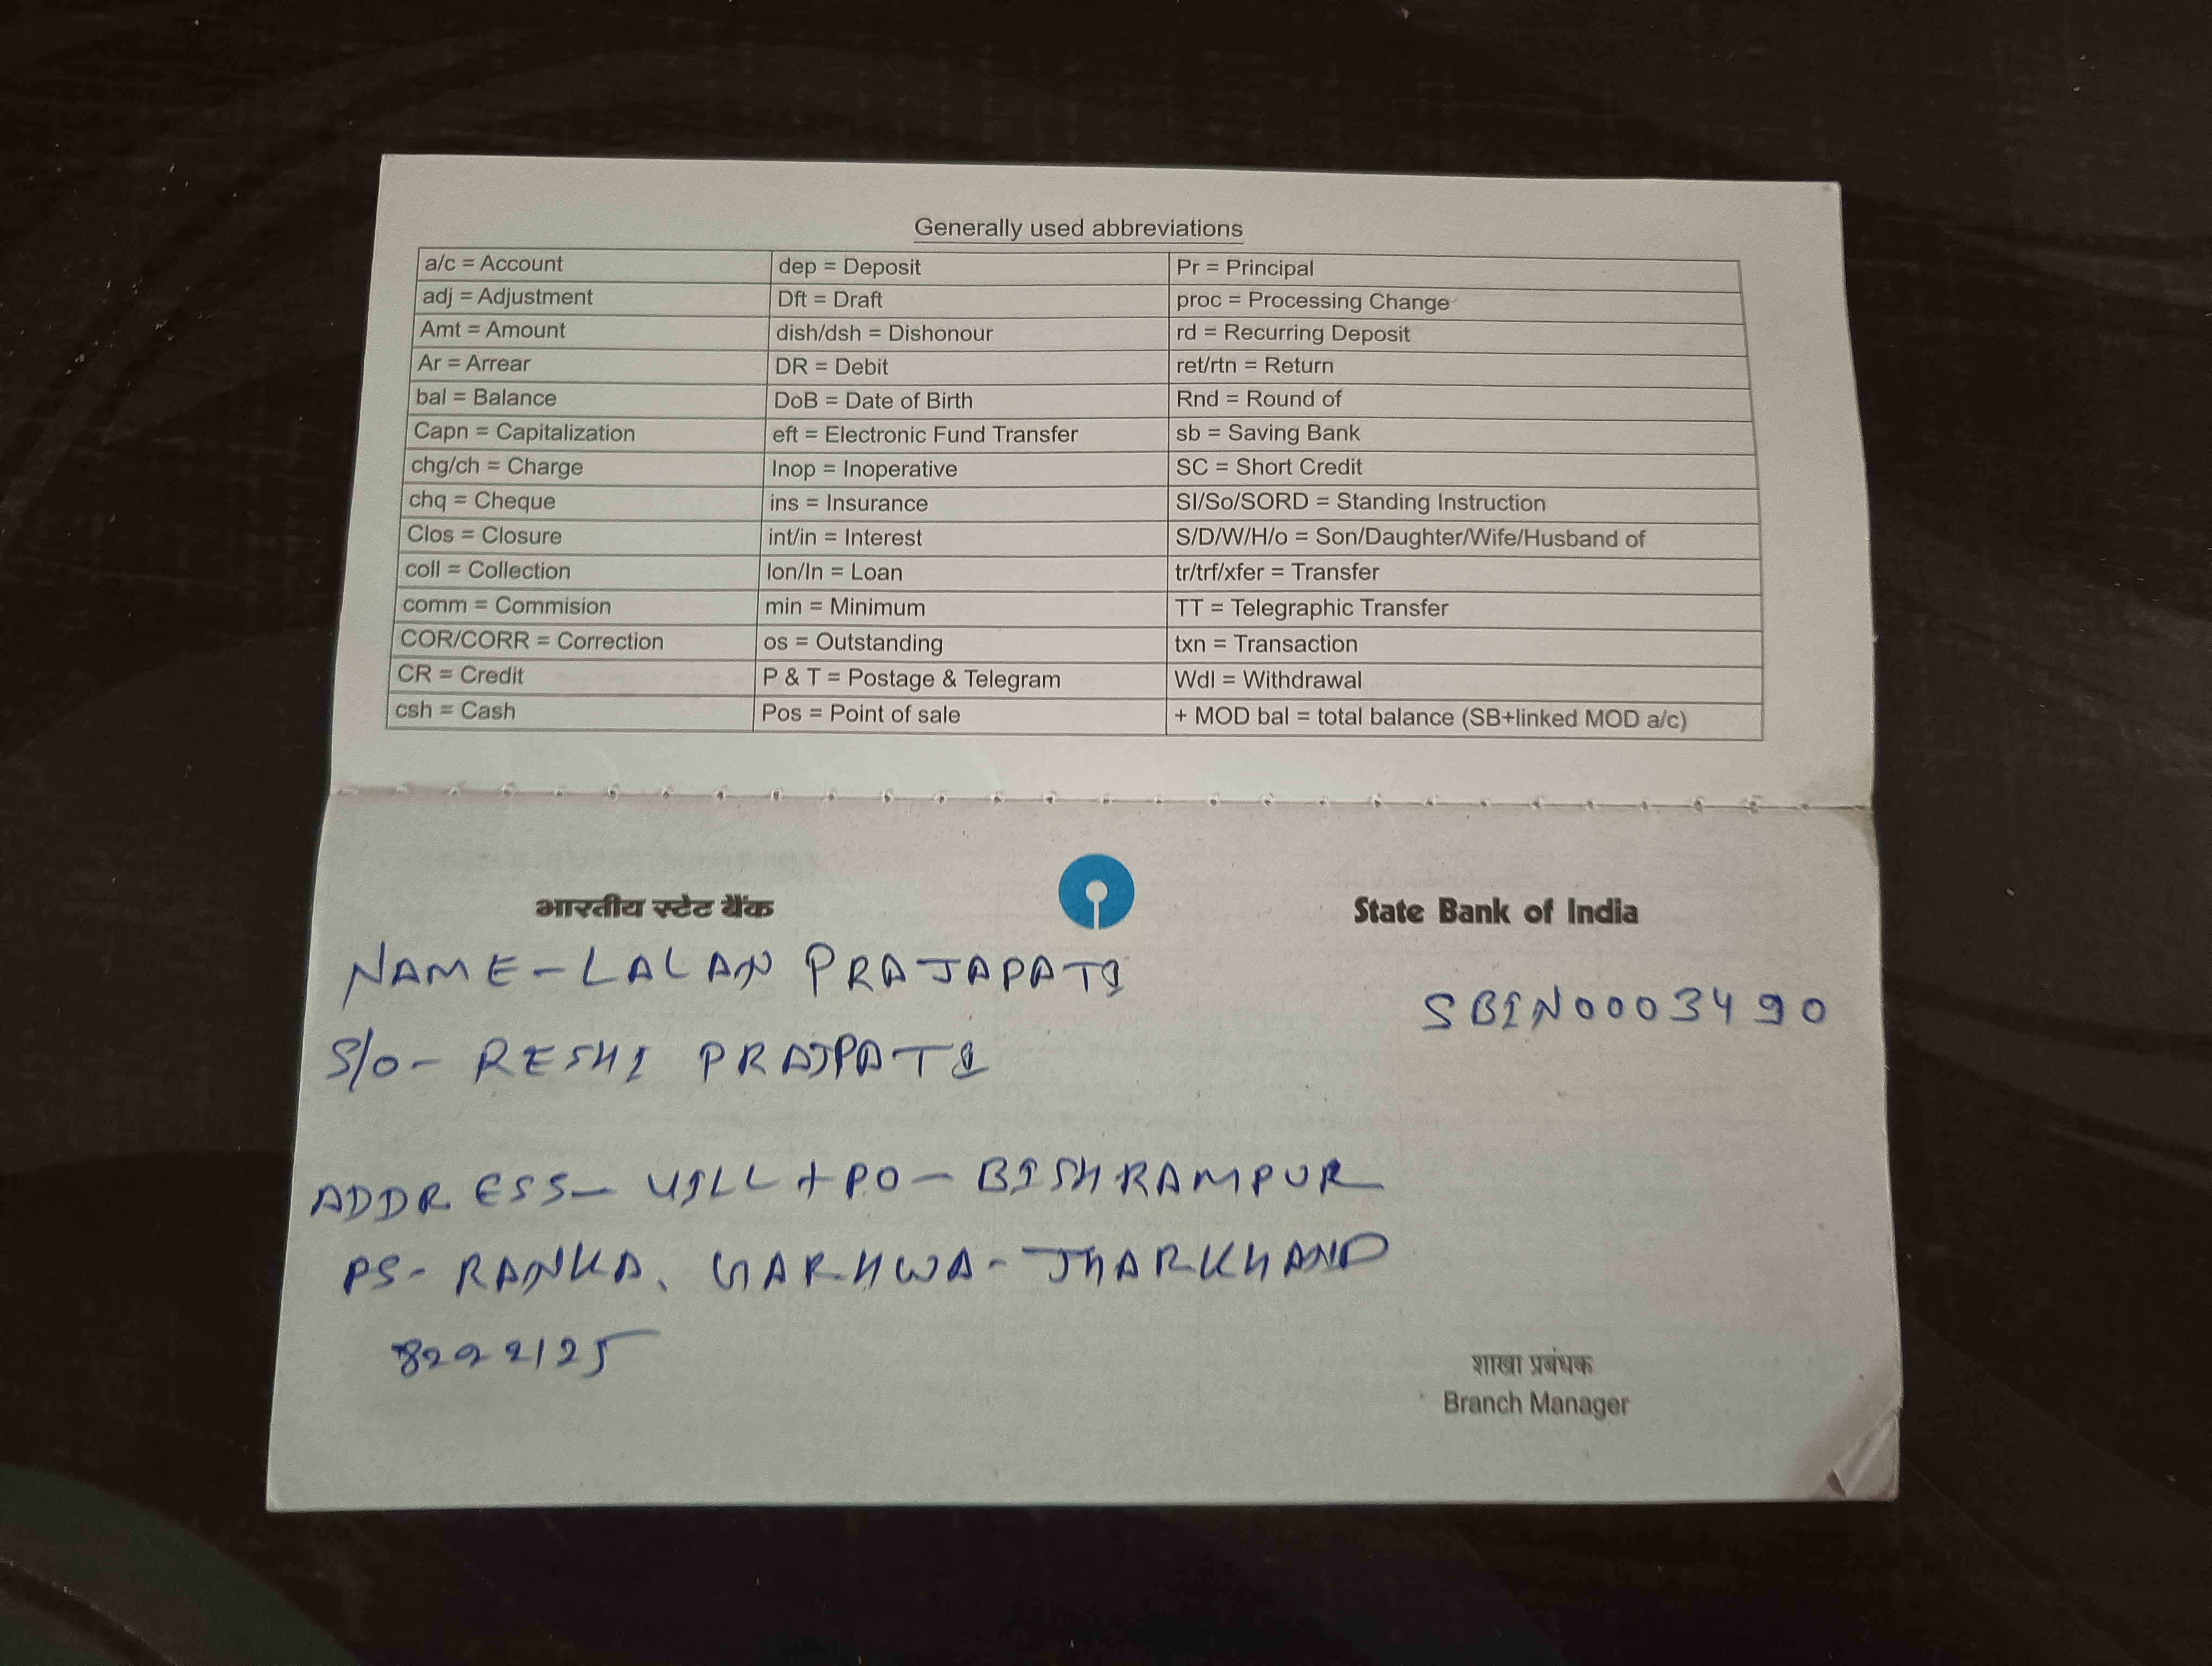 Generally used abbreviations
a/c = Account dep = Deposit Pr = Principal
adj = Adjustment Dft = Draft proc = Processing Change
Amt = Amount dish/dsh = Dishonour rd = Recurring Deposit
Ar = Arrear DR = Debit ret/rtn = Return
bal = Balance DoB = Date of Birth Rnd = Round of
Capn = Capitalization eft = Electronic Fund Transfer sb = Saving Bank
chg/ch = Charge Inop = Inoperative SC = Short Credit
chq = Cheque ins = Insurance SI/So/SORD = Standing Instruction
Clos = Closure int/in = Interest S/D/W/H/o = Son/Daughter/Wife/Husband of
coll = Collection lon/ln = Loan tr/trf/xfer = Transfer
comm = Commision min = Minimum TT = Telegraphic Transfer
COR/CORR = Correction os = Outstanding txn = Transaction
CR = Credit P & T = Postage & Telegram Wdl = Withdrawal
csh = Cash Pos = Point of sale + MOD bal = total balance (SB+linked MOD a/c)
भारतीय स्टेट बैंक State Bank of India
NAME - LALAN PRAJAPATI
SBIN0003490
S/O - RESHI PRAJPATI
ADDRESS - VILL + PO - BISHRAMPUR
PS - RANKA, GARHWA - JHARKHAND
8222125
शाखा प्रबंधक
Branch Manager